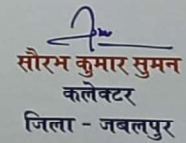 सौरभ कुमार सुमन
कलेक्टर
जिला - जबलपुर